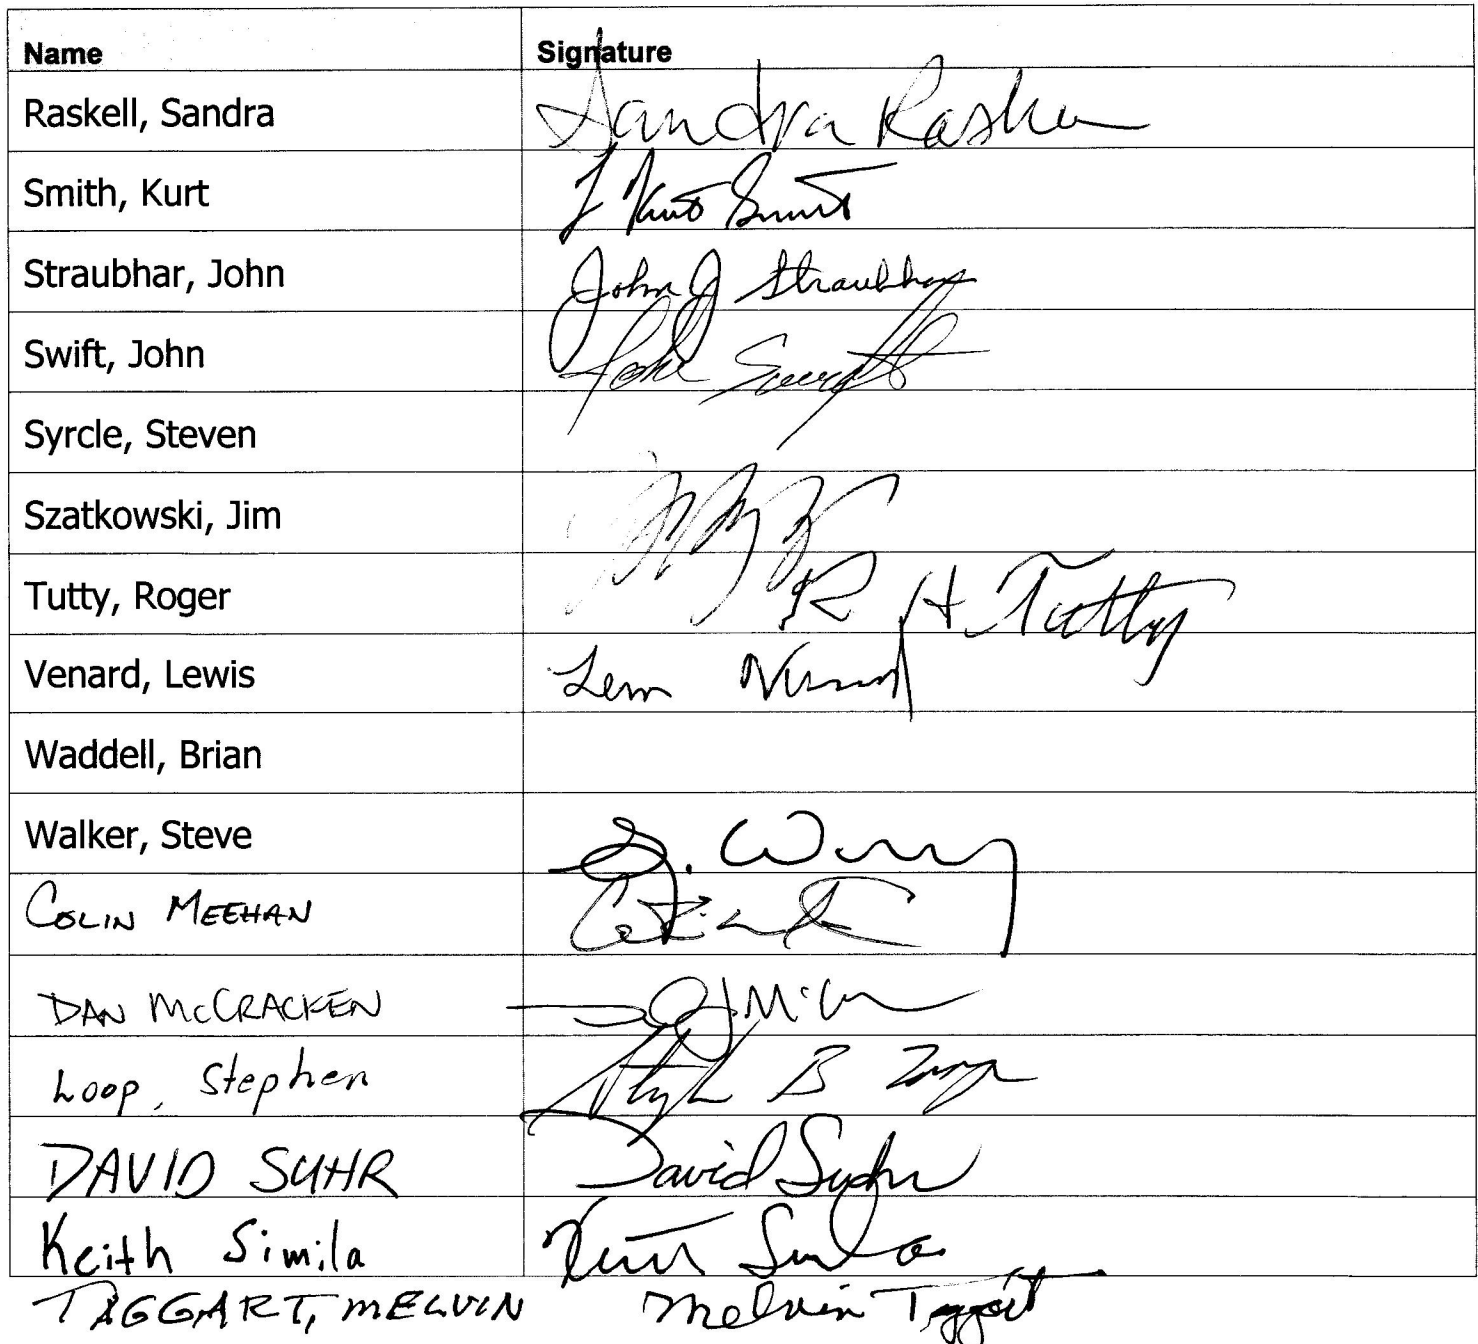 Name Signature
Raskell, Sandra Sandra Raske
Smith, Kurt Kurt Smith
Straubhar, John John J Straubhar
Swift, John John Swift
Syrcle, Steven
Szatkowski, Jim
Tutty, Roger R H Tutty
Venard, Lewis Lewis Venard
Waddell, Brian
Walker, Steve S. W
COLIN MEEHAN
DAN McCRACKEN
Loop, Stephen B
DAVID SUHR David Suhr
Keith Simila Keith Simila
TAGGART, MELVIN Melvin Taggart